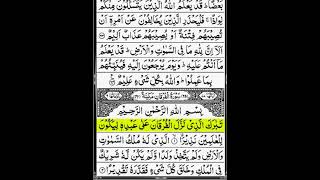 بَعْضًا ؕ قَدْ یَعْلَمُ اللّٰهُ الَّذِیْنَ یَتَسَلَّلُوْنَ مِنْكُمْ
لِوَاذًا ۚ فَلْیَحْذَرِ الَّذِیْنَ یُخَالِفُوْنَ عَنْ اَمْرِهٖۤ اَنْ
تُصِیْبَهُمْ فِتْنَةٌ اَوْ یُصِیْبَهُمْ عَذَابٌ اَلِیْمٌ
اَلَاۤ اِنَّ لِلّٰهِ مَا فِی السَّمٰوٰتِ وَالْاَرْضِ ؕ قَدْ یَعْلَمُ
مَاۤ اَنْتُمْ عَلَیْهِ ؕ وَیَوْمَ یُرْجَعُوْنَ اِلَیْهِ فَیُنَبِّئُهُمْ
بِمَا عَمِلُوْا ؕ وَاللّٰهُ بِكُلِّ شَیْءٍ عَلِیْمٌ
سُوْرَةُ الْفُرْقَانِ مَكِّیَّةٌ
بِسْمِ اللّٰهِ الرَّحْمٰنِ الرَّحِیْمِ
تَبٰرَكَ الَّذِیْ نَزَّلَ الْفُرْقَانَ عَلٰی عَبْدِهٖ لِیَكُوْنَ
لِلْعٰلَمِیْنَ نَذِیْرًا ۙ الَّذِیْ لَهٗ مُلْكُ السَّمٰوٰتِ
وَالْاَرْضِ وَلَمْ یَتَّخِذْ وَلَدًا وَّلَمْ یَكُنْ لَّهٗ شَرِیْكٌ
فِی الْمُلْكِ وَخَلَقَ كُلَّ شَیْءٍ فَقَدَّرَهٗ تَقْدِیْرًا